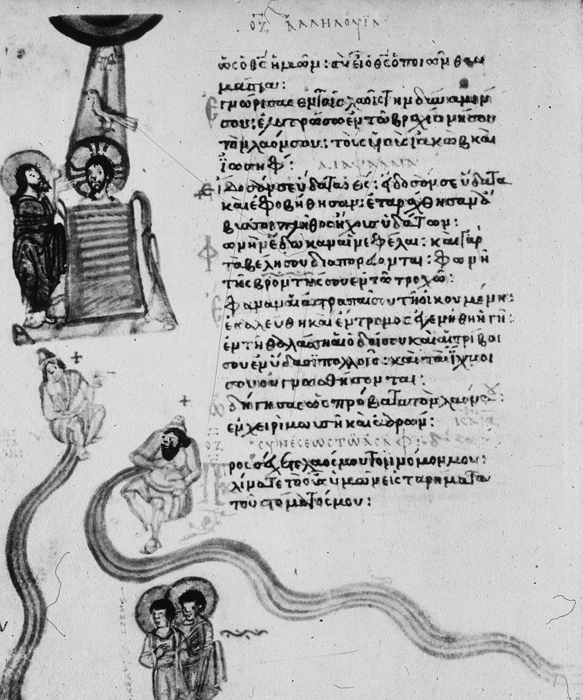 ΑΛΛΗΛΟΥΪΑ
ὡς ὁ θς ἡμῶν: σὺ εἶ ὁ θς ὁ ποιῶν θαυ
μάσια:
Ἐγνώρισας ἐν τοῖς λαοῖς τὴν δύναμίν
σου: ἐλυτρώσω ἐν τῶ βραχίονί σου
τὸν λαόν σου: τοὺς υἱοὺς ἰακωβ καὶ
ἰωσήφ: ΔΙΑΨΑΛΜΑ
Εἴδοσάν σε ὕδατα ὁ θς: εἴδοσάν σε ὕδατα
καὶ ἐφοβήθησαν: ἐταράχθησαν ἄ
βυσσοι πλῆθος ἤχους ὑδάτων:
Φωνὴν ἔδωκαν αἱ νεφέλαι: καὶ γὰρ
τὰ βέλη σου διαπορεύονται: φωνὴ
τῆς βροντῆς σου ἐν τῶ τροχῶ:
Ἔφαναν αἱ ἀστραπαί σου τῆ οἰκουμένη:
ἐσαλεύθη καὶ ἔντρομος ἐγενήθη ἡ γῆ:
ἐν τῆ θαλάσση αἱ ὁδοί σου καὶ αἱ τρίβοι
σου ἐν ὕδασι πολλοῖς: καὶ τὰ ἴχνη
σου οὐ γνωσθήσονται:
ὡδήγησας ὡς πρόβατα τὸν λαόν σου
ἐν χειρὶ μωυσῆ καὶ ἀαρών:
ΟΖ ΣΥΝΕΣΕΩΣ ΤΩ ΑΣΑΦ:
Προσέχετε λαός μου τὸν νόμον μου:
κλίνατε τὸ οὖς ὑμῶν εἰς τὰ ῥήματα
τοῦ στόματός μου: